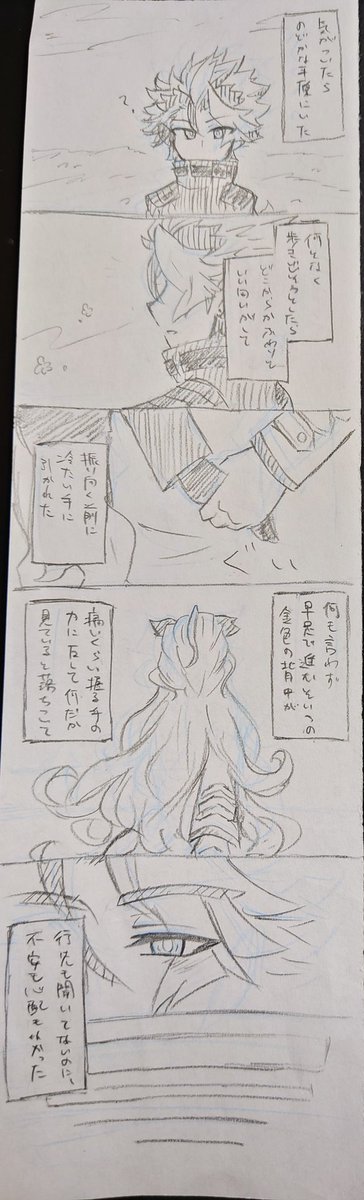 気がついたら
のどかな平原にいた
何となく
歩き出そうとしたら
どこからかふわりと
いい匂いがして
振り向く前に
冷たい手に
引かれた
ぐい
何も言わず
早足で進むそいつの
金色の背中が
痛いくらい握る手の
力に反して何だか
見ていると落ちこて
行先も聞いてないのに、
不安も心配もなかった